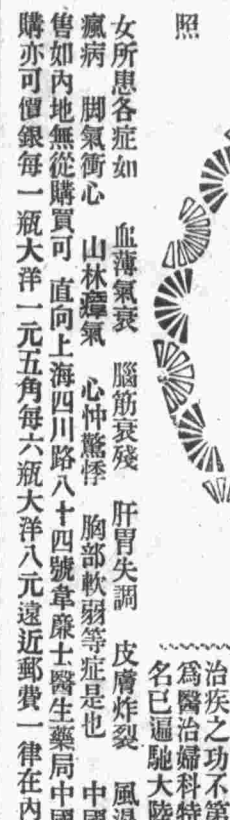 照
治疾之功不第
爲醫治婦科特
名已遍馳大陸
女所患各症如 血薄氣衰 腦筋衰殘 肝胃失調 皮膚炸裂 風濕
瘋病 脚氣衝心 山林瘴氣 心忡驚悸 胸部軟弱等症是也 中國
售如內地無從購買可 直向上海四川路八十四號韋廉士醫生藥局中國
購亦可價銀每一瓶大洋一元五角每六瓶大洋八元遠近郵費一律在內